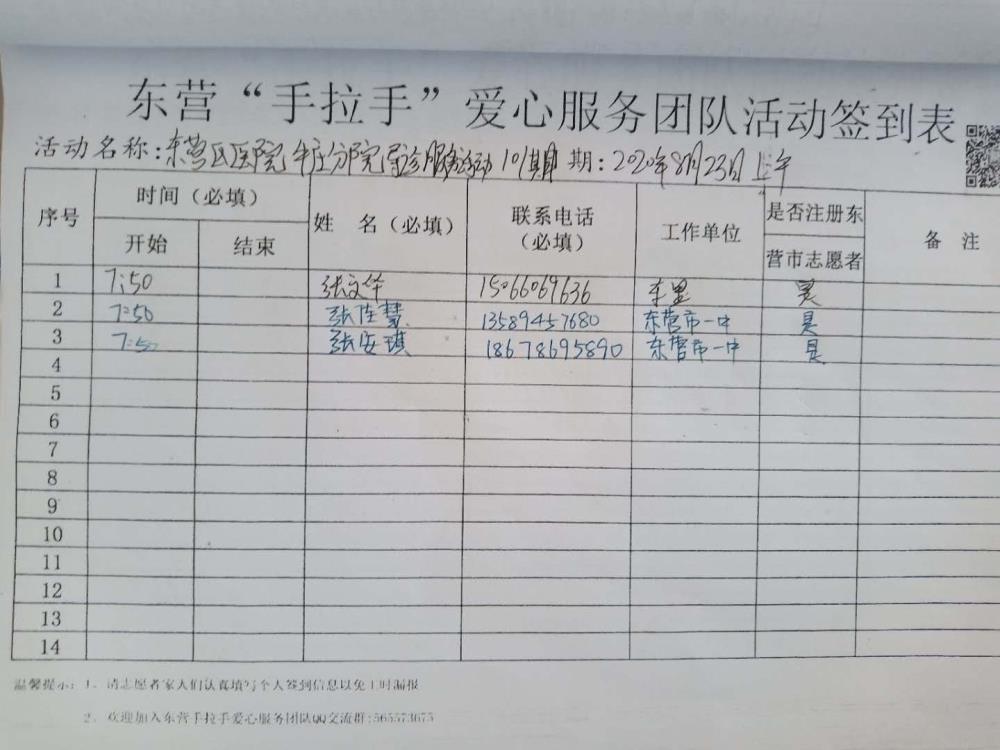 东营“手拉手”爱心服务团队活动签到表
活动名称:东营区医院牛庄分院导诊服务活动101期 期:2020年8月23日上午
序号 时间（必填） 姓 名（必填） 联系电话（必填） 工作单位 是否注册东营市志愿者 备 注
开始 结束
1 7:50 张文华 15066069636 是
2 7:50 张佳慧 13589457680 东营市一中 是
3 7:50 张安琪 18678695890 东营市一中 是
4
5
6
7
8
9
10
11
12
13
14
温馨提示: 1、请志愿者家人们认真填写个人签到信息以免工时漏报
2、欢迎加入东营手拉手爱心服务团队QQ交流群:565573675